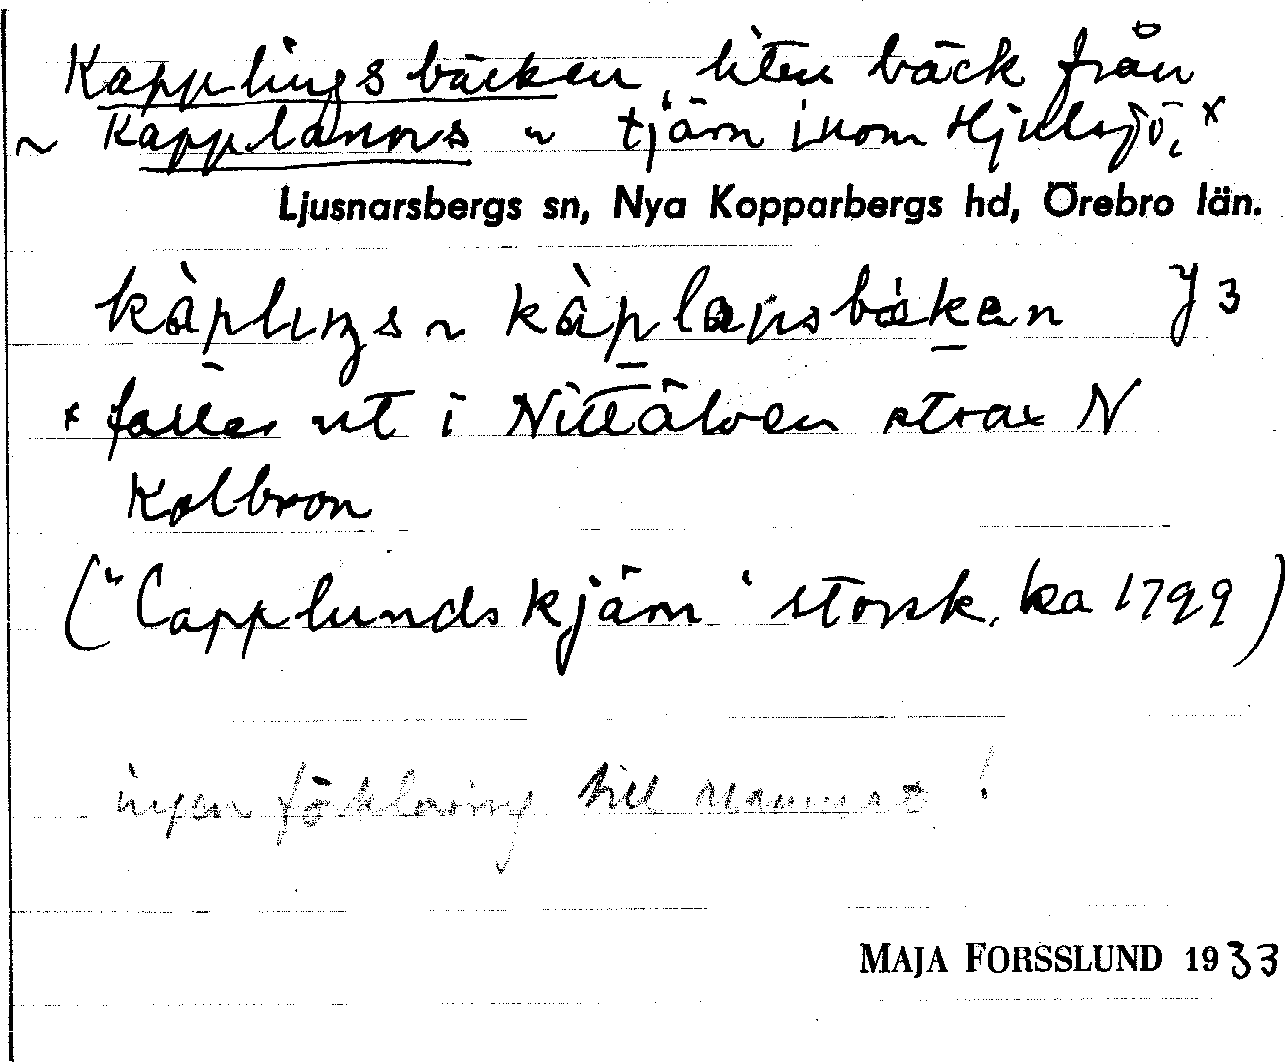 Kapplingsbäcken, liten bäck från
~ Kapplanns ~ tjärn inom Hjulsjö, x
Ljusnarsbergs sn, Nya Kopparbergs hd, Örebro län.
kàplıŋs ~ kàplaŋsbäkan J 3
x faller ut i Nittälven strax N
Kolbron
("Capplundskjärn" storsk. ka 1799)
ingen förklaring till namnet!
MAJA FORSSLUND 1933